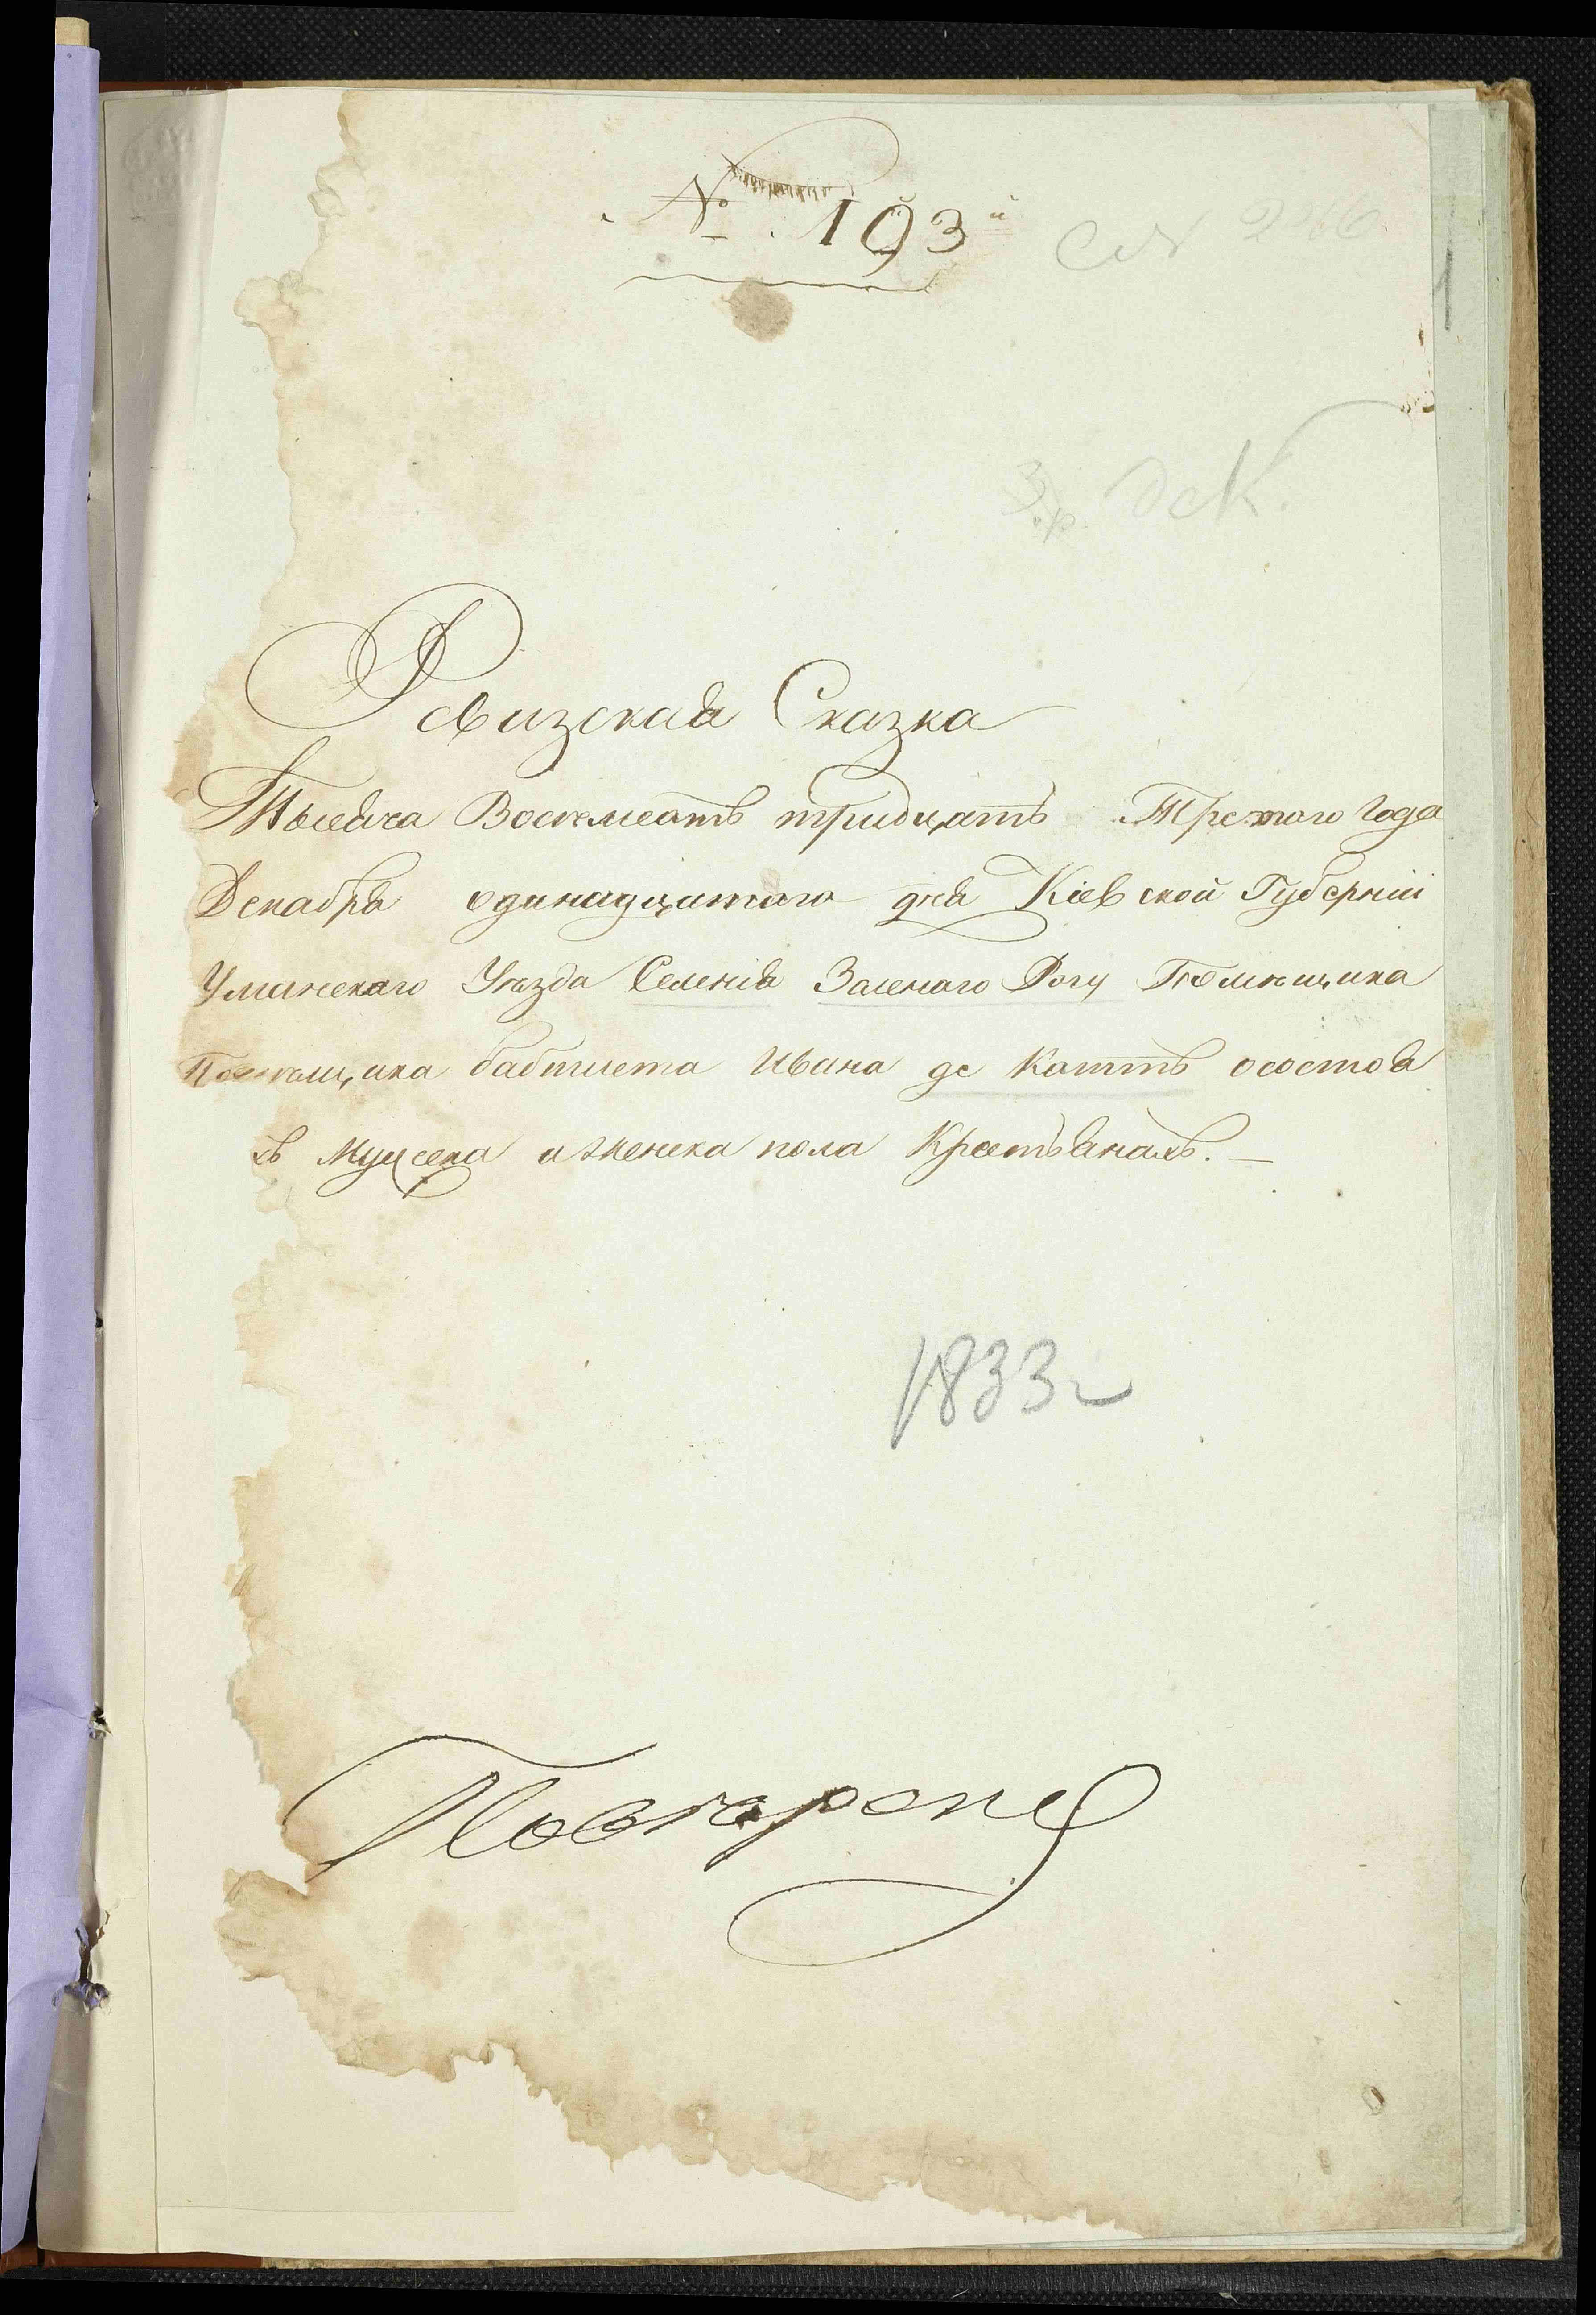 № 193й
Ревизская Сказка
Тысяча Восемсотъ тридцать Третого Года
Декабря одинадцатого дня Кіевской Губерніи
Уманского Уезда Селенія Зеленого Рогу Помещика
бабтиста Ивана де Каттъ осостоя
хъ Мужеска и женска пола Крестьянахъ. —
1833 г